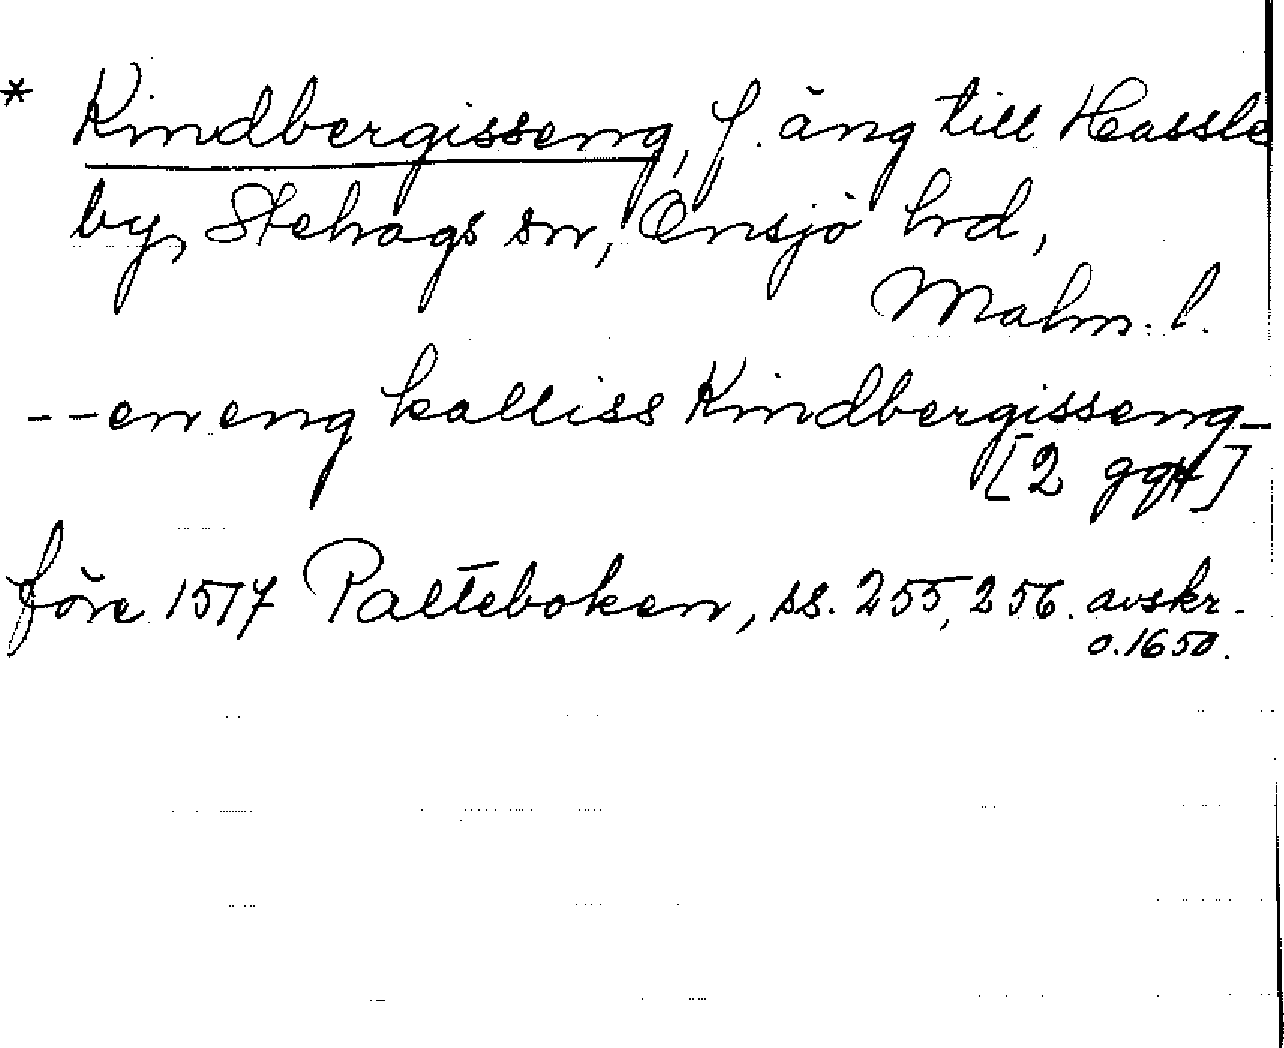 * Kindbergisseng, f. äng till Hassle
by, Stehags sn, Onsjö hd,
Malm. l.
-- en eng kalliss Kindbergisseng -
[2 ggr]
före 1517 Palteboken, ss. 255, 256. avskr.
o. 1650.